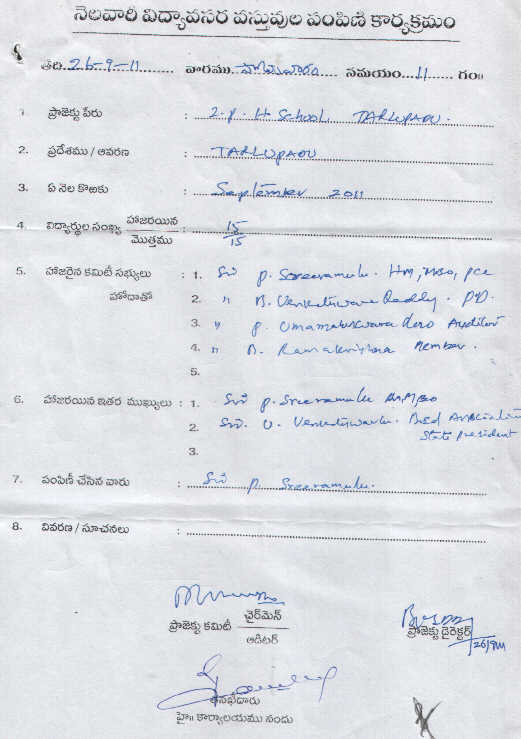 నెలవారీ విద్యావసర వస్తువుల పంపిణి కార్యక్రమం
తేది 26-9-11 వారము సోమవారం సమయం 11 గం॥
1. ప్రాజెక్టు పేరు : Z.P. H School, TARLUPADU.
2. ప్రదేశము / ఆవరణ : TARLUPADU
3. ఏ నెల కొఱకు : September 2011
4. విద్యార్థుల సంఖ్య హాజరయిన / మొత్తము : 15/15
5. హాజరైన కమిటీ సభ్యులు : 1. Sri P. Sreeramulu. HM,
హోదాతో 2. " B. Venkateswara Reddy. PD.
3. " P. Umamaheswara Rao Auditor
4. " B. Ramakrishna Member.
5.
6. హాజరయిన ఇతర ముఖ్యులు : 1. Sri P. Sreeramulu
2. Sri. U. Venkateswarlu. State president
3.
7. పంపిణీ చేసిన వారు : Sri P. Sreeramulu.
8. వివరణ / సూచనలు :
ప్రాజెక్టు కమిటీ చైర్‌మెన్ / ఆడిటర్
ప్రాజెక్టు డైరెక్టర్
26/9/11
తనఖీదారు
హై॥ కార్యాలయము నందు